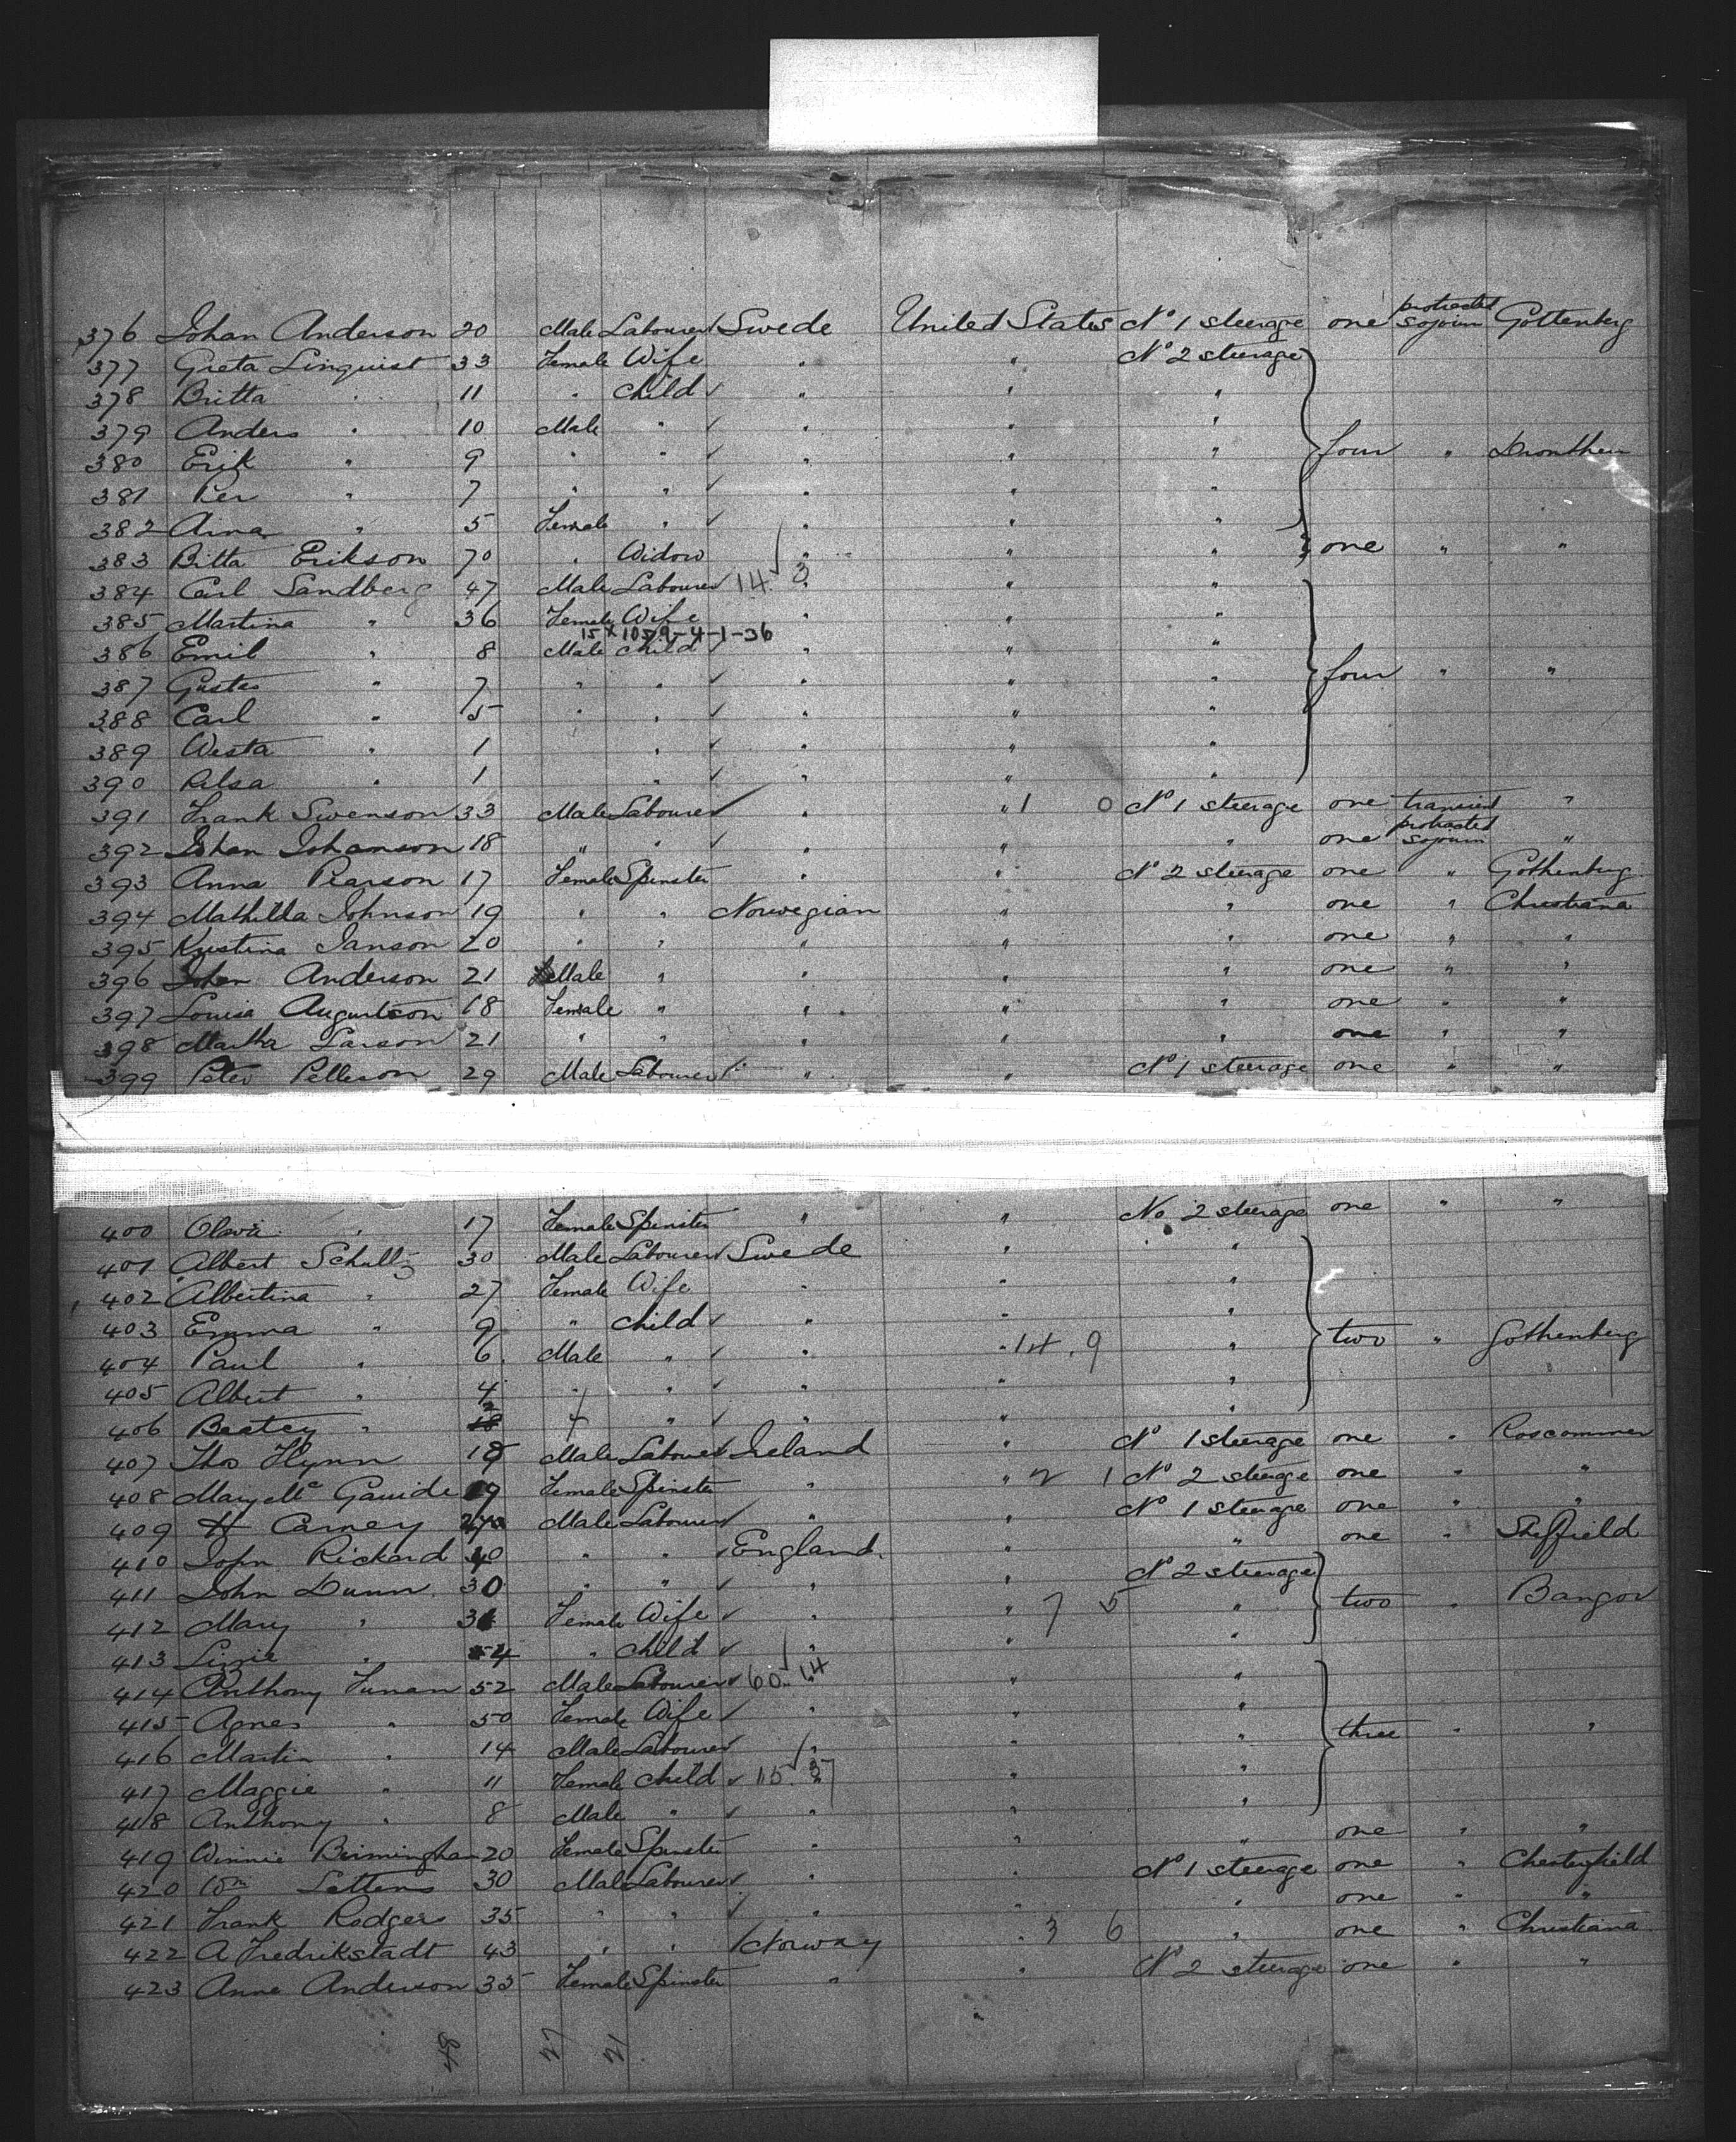 376 Johan Anderson 20 Male Labourer Swede United States No 1 steerage one protracted sojourn Gottenberg
377 Greta Linquist 33 Female Wife " " No 2 steerage
378 Britta " 11 " Child " " "
379 Anders " 10 Male " " " "
380 Erik " 9 " " " " " four " Drontheu
381 Per " 7 " " " " "
382 Aina " 5 Female " " " "
383 Bitta Erikson 70 " Widow " " " one " "
384 Carl Sandberg 47 Male Labourer 14 3 " " "
385 Martina " 36 Female Wife " " "
15 x 1059-4-1-36
386 Emil " 8 Male child " " "
387 Gustas " 7 " " " " " four " "
388 Carl " 5 " " " " "
389 Westa " 1 " " " "
390 " 1 " " " "
391 Frank Swenson 33 Male Labourer " " 1 0 No 1 steerage one transient "
392 Johan Johanson 18 " " " " " one protracted sojourn "
393 Anna Pearson 17 Female Spinster " " No 2 steerage one " Gothenberg
394 Mathilda Johnson 19 " " Norwegian " " one " Christiana
395 Kristina Janson 20 " " " " " one " "
396 Johan Anderson 21 Male " " " " one " "
397 Louisa Augustson 18 Female " " " " one " "
398 Martha Larson 21 " " " " " one " "
399 Peter Petterson 29 Male Labourer " " No 1 steerage one " "
400 Olava " 17 Female Spinster " " No 2 steerage one " "
401 Albert Schultz 30 Male Labourer Swede " "
402 Albertina " 27 Female Wife " " "
403 Emma " 9 " child " " "
404 Paul " 6 Male " " " 14 9 " two " Gothenberg
405 Albert " 4 " " " " "
406 Beatey " 2 f " " " "
407 Thos Flynn 18 Male Labourer Ireland " No 1 steerage one " Roscommon
408 Mary Mc 19 Female Spinster " " 2 1 No 2 steerage one " "
409 H Carney Male Labourer " " No 1 steerage one " "
410 John Rickard 40 " " England " " one " Sheffield
411 John Dunn 30 " " " " No 2 steerage
412 Mary " 31 Female Wife " " 7 5 " two " Bangor
413 Lizzie " 4 " child " " "
414 Anthony Funan 52 Male Labourer 60 14 " " "
415 Agnes " 50 Female Wife " " "
416 Martin " 14 Male Labourer " " " three " "
417 Maggie " 11 Female child 15 37 " " "
418 Anthony " 8 Male " " " "
419 Winnie Birmingham 20 Female Spinster " " " one " "
420 Wm Lettens 30 Male Labourer " " No 1 steerage one " Chesterfield
421 Frank Rodgers 35 " " " " " one " "
422 A Fredrikstadt 43 " " Norway " 3 6 " one " Christiana
423 Anne Anderson 35 Female Spinster " " No 2 steerage one " "
48 27 21